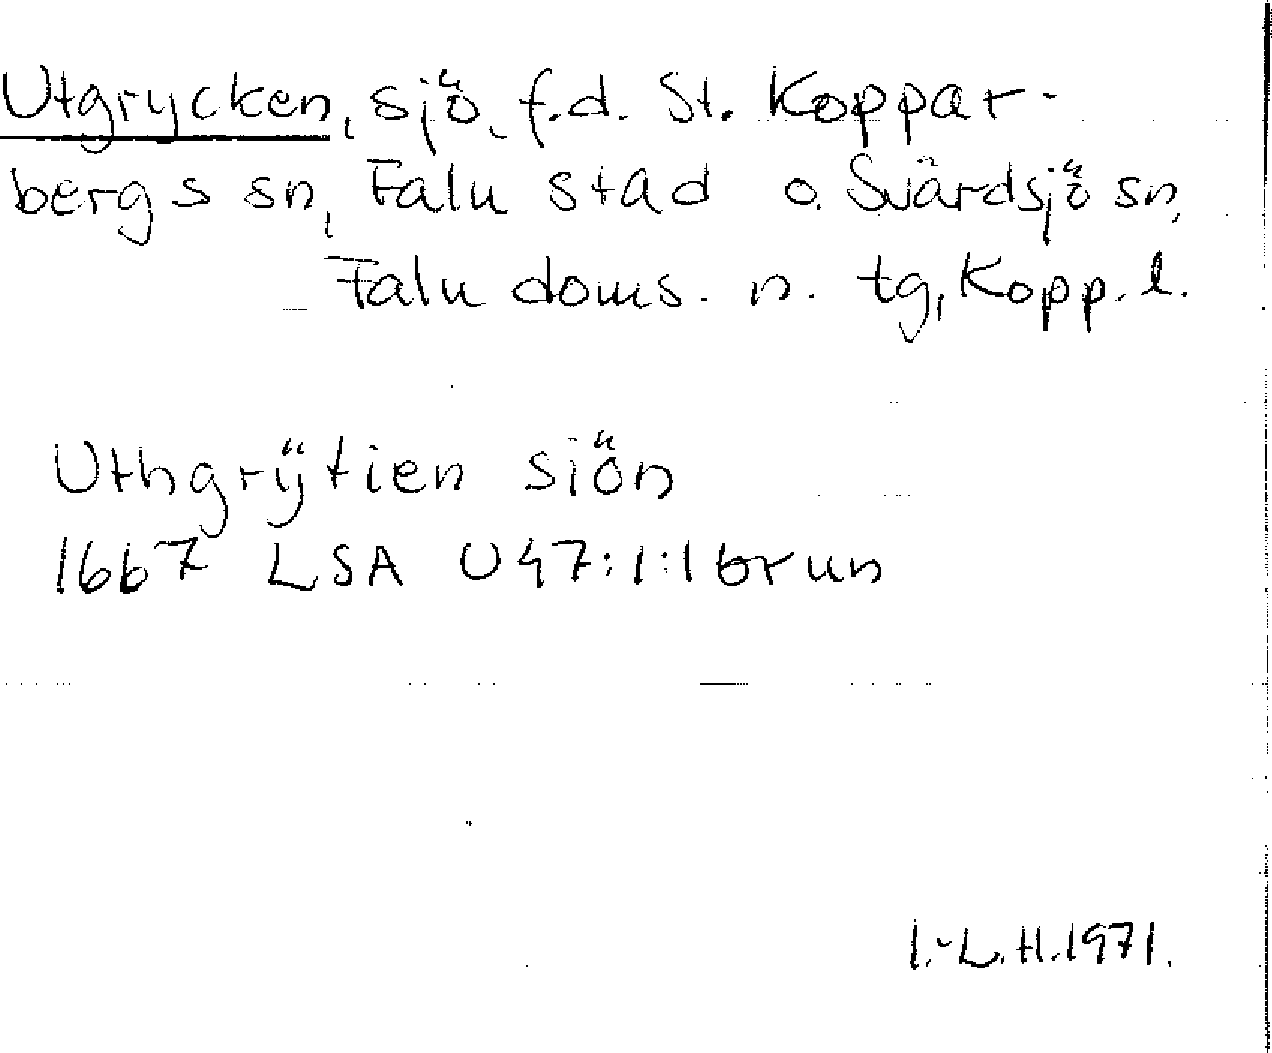 Utgrycken, sjö, f.d. St. Koppar-
bergs sn, Falu stad o. Svärdsjö sn,
Falu doms. n. tg, Kopp. l.
Uthgrÿtien siön
1667 LSA U47:1:1 brun
I.-L. H. 1971.